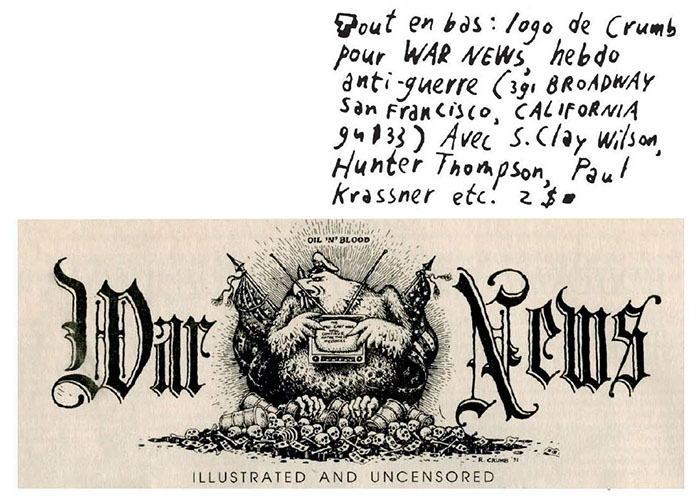 Tout en bas : logo de Crumb
pour WAR NEWS, hebdo
anti-guerre (391 BROADWAY
San Francisco, CALIFORNIA
94133) Avec S. Clay Wilson,
Hunter Thompson, Paul
Krassner etc. 2 $.
OIL 'N' BLOOD
War News
R. CRUMB '91
ILLUSTRATED AND UNCENSORED